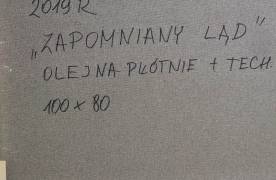 2019 R
„ZAPOMNIANY LĄD”
OLEJ NA PŁÓTNIE + TECH.
100 x 80